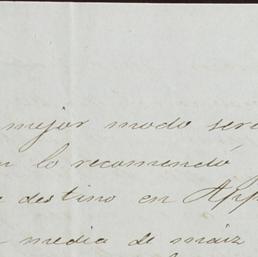 mejor modo ser
lo recomendó
destino en App
media de maiz